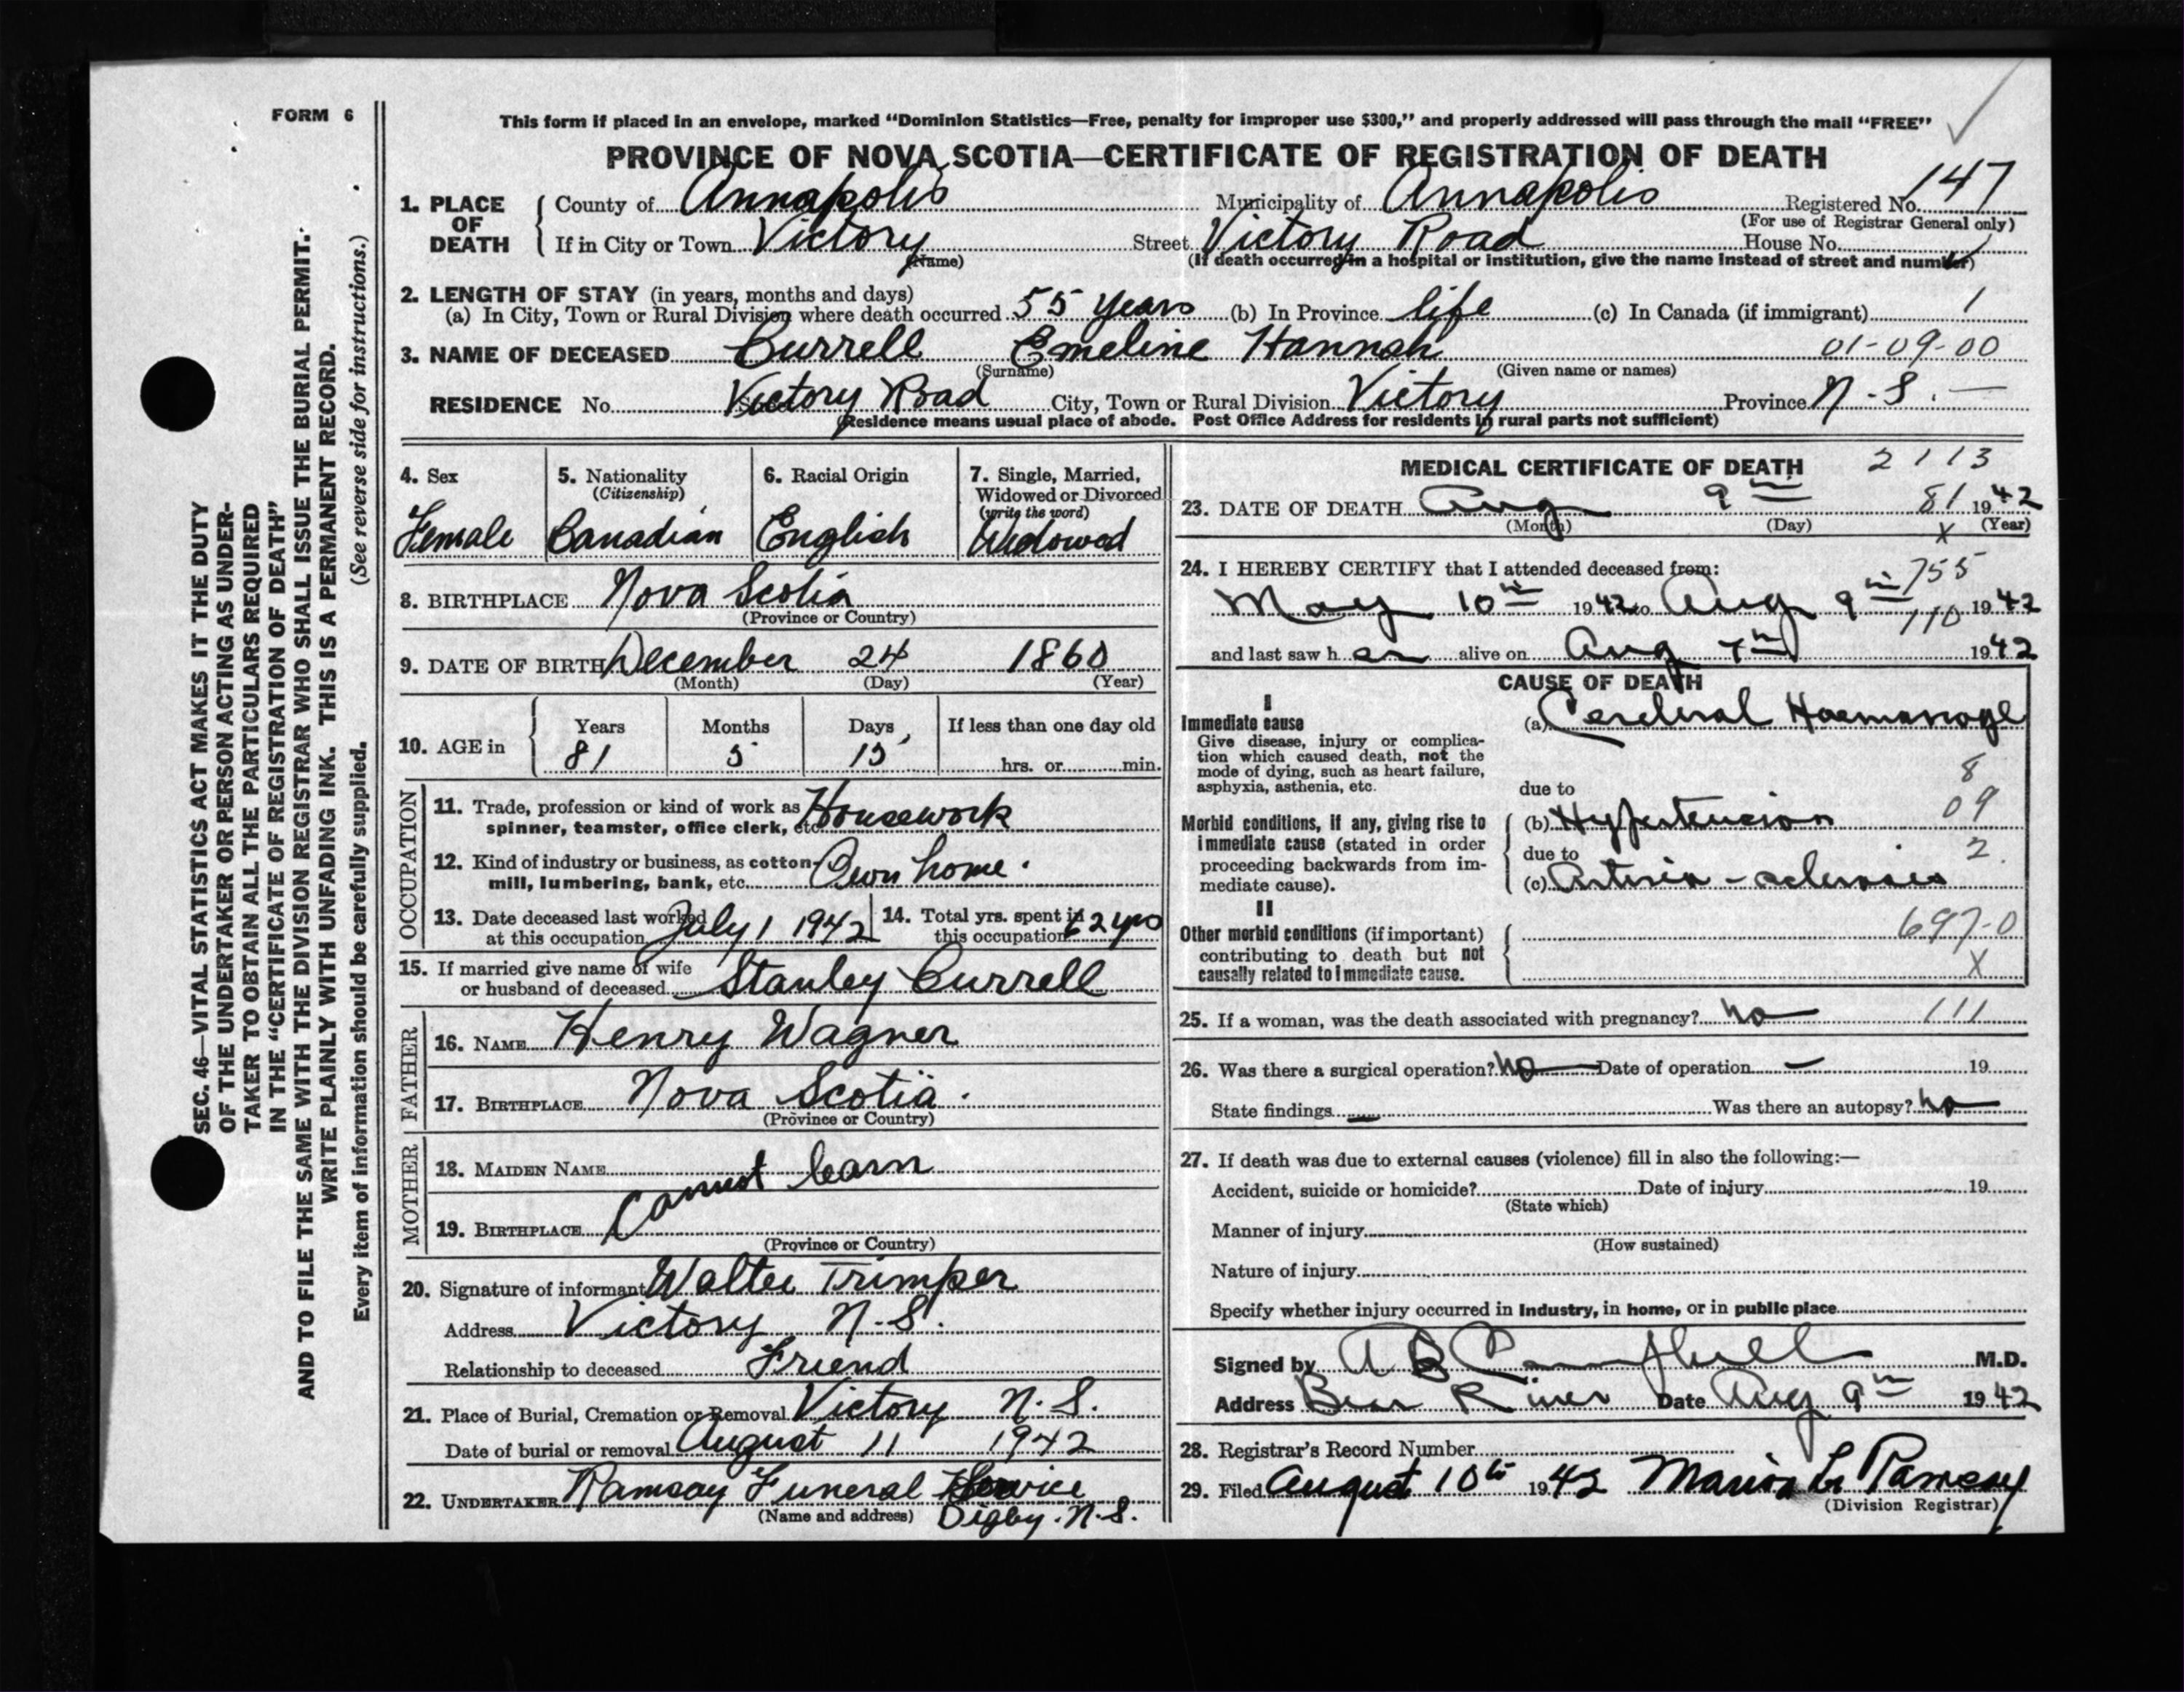 FORM 6
This form if placed in an envelope, marked "Dominion Statistics—Free, penalty for improper use $300," and properly addressed will pass through the mail "FREE"
PROVINCE OF NOVA SCOTIA—CERTIFICATE OF REGISTRATION OF DEATH
1. PLACE OF DEATH
County of Annapolis Municipality of Annapolis Registered No. 147
(For use of Registrar General only)
If in City or Town Victory Street Victory Road House No.
(Name) (If death occurred in a hospital or institution, give the name instead of street and number)
2. LENGTH OF STAY (in years, months and days)
(a) In City, Town or Rural Division where death occurred 55 years (b) In Province life (c) In Canada (if immigrant) 1
3. NAME OF DECEASED Currell Emeline Hannah 01-09-00
(Surname) (Given name or names)
RESIDENCE No. Victory Road City, Town or Rural Division Victory Province N.S. —
(Residence means usual place of abode. Post Office Address for residents in rural parts not sufficient)
4. Sex
Female
5. Nationality
(Citizenship)
Canadian
6. Racial Origin
English
7. Single, Married,
Widowed or Divorced
(write the word)
Widowed
8. BIRTHPLACE Nova Scotia
(Province or Country)
9. DATE OF BIRTH December 24 1860
(Month) (Day) (Year)
10. AGE in
Years Months Days If less than one day old
81 5 15 hrs. or min.
OCCUPATION
11. Trade, profession or kind of work as Housework
spinner, teamster, office clerk, etc.
12. Kind of industry or business, as cotton- Own home.
mill, lumbering, bank, etc.
13. Date deceased last worked
at this occupation July 1 1942
14. Total yrs. spent in
this occupation 62 yrs
15. If married give name of wife
or husband of deceased Stanley Currell
FATHER
16. NAME Henry Wagner
17. BIRTHPLACE Nova Scotia.
(Province or Country)
MOTHER
18. MAIDEN NAME
Cannot learn
19. BIRTHPLACE
(Province or Country)
20. Signature of informant Walter Trimper
Address Victory N.S.
Relationship to deceased Friend
21. Place of Burial, Cremation or Removal Victory N.S.
Date of burial or removal August 11 1942
22. UNDERTAKER Ramsay Funeral Service
(Name and address) Digby. N.S.
MEDICAL CERTIFICATE OF DEATH 2113
23. DATE OF DEATH Aug 9th 81 1942
(Month) (Day) X (Year)
24. I HEREBY CERTIFY that I attended deceased from: 755
May 10th 1942 to Aug 9th 1942
110
and last saw her alive on Aug 7th 1942
CAUSE OF DEATH
I
Immediate cause (a) Cerebral Haemorrage
Give disease, injury or complica-
tion which caused death, not the
mode of dying, such as heart failure,
asphyxia, asthenia, etc.
8
due to
09
Morbid conditions, if any, giving rise to (b) Hypertension
immediate cause (stated in order due to 2.
proceeding backwards from im-
mediate cause). (c) Arterio-sclerosis
II
Other morbid conditions (if important) 697-0
contributing to death but not
causally related to immediate cause. X
25. If a woman, was the death associated with pregnancy? No 111
26. Was there a surgical operation? No Date of operation — 19
State findings — Was there an autopsy? No
27. If death was due to external causes (violence) fill in also the following:—
Accident, suicide or homicide? Date of injury 19
(State which)
Manner of injury
(How sustained)
Nature of injury
Specify whether injury occurred in industry, in home, or in public place
Signed by A B Campbell M.D.
Address Bear River Date Aug 9th 1942
28. Registrar's Record Number
29. Filed August 10th 1942 Marion L. Ramsay
(Division Registrar)
SEC. 46—VITAL STATISTICS ACT MAKES IT THE DUTY
OF THE UNDERTAKER OR PERSON ACTING AS UNDER-
TAKER TO OBTAIN ALL THE PARTICULARS REQUIRED
IN THE "CERTIFICATE OF REGISTRATION OF DEATH"
AND TO FILE THE SAME WITH THE DIVISION REGISTRAR WHO SHALL ISSUE THE BURIAL PERMIT.
WRITE PLAINLY WITH UNFADING INK. THIS IS A PERMANENT RECORD.
Every item of information should be carefully supplied. (See reverse side for instructions.)